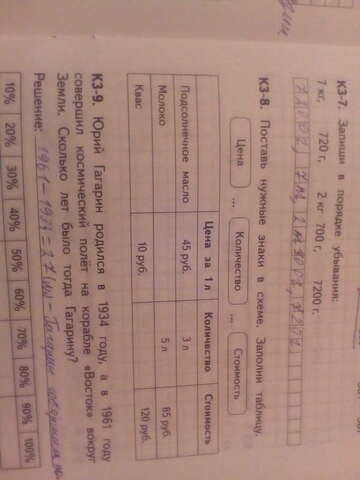 КЗ-7. Запиши в порядке убывания:
7 кг, 720 г, 2 кг 700 г, 7200 г.
КЗ-8. Поставь нужные знаки в схеме. Заполни таблицу.
Цена ... Количество ... Стоимость
Цена за 1 л Количество Стоимость
Подсолнечное масло 45 руб. 3 л
Молоко 5 л 85 руб.
Квас 10 руб. 120 руб.
КЗ-9. Юрий Гагарин родился в 1934 году, а в 1961 году
совершил космический полёт на корабле «Восток» вокруг
Земли. Сколько лет было тогда Гагарину?
Решение: 1961-1934=27(л)-
10% 20% 30% 40% 50% 60% 70% 80% 90% 100%